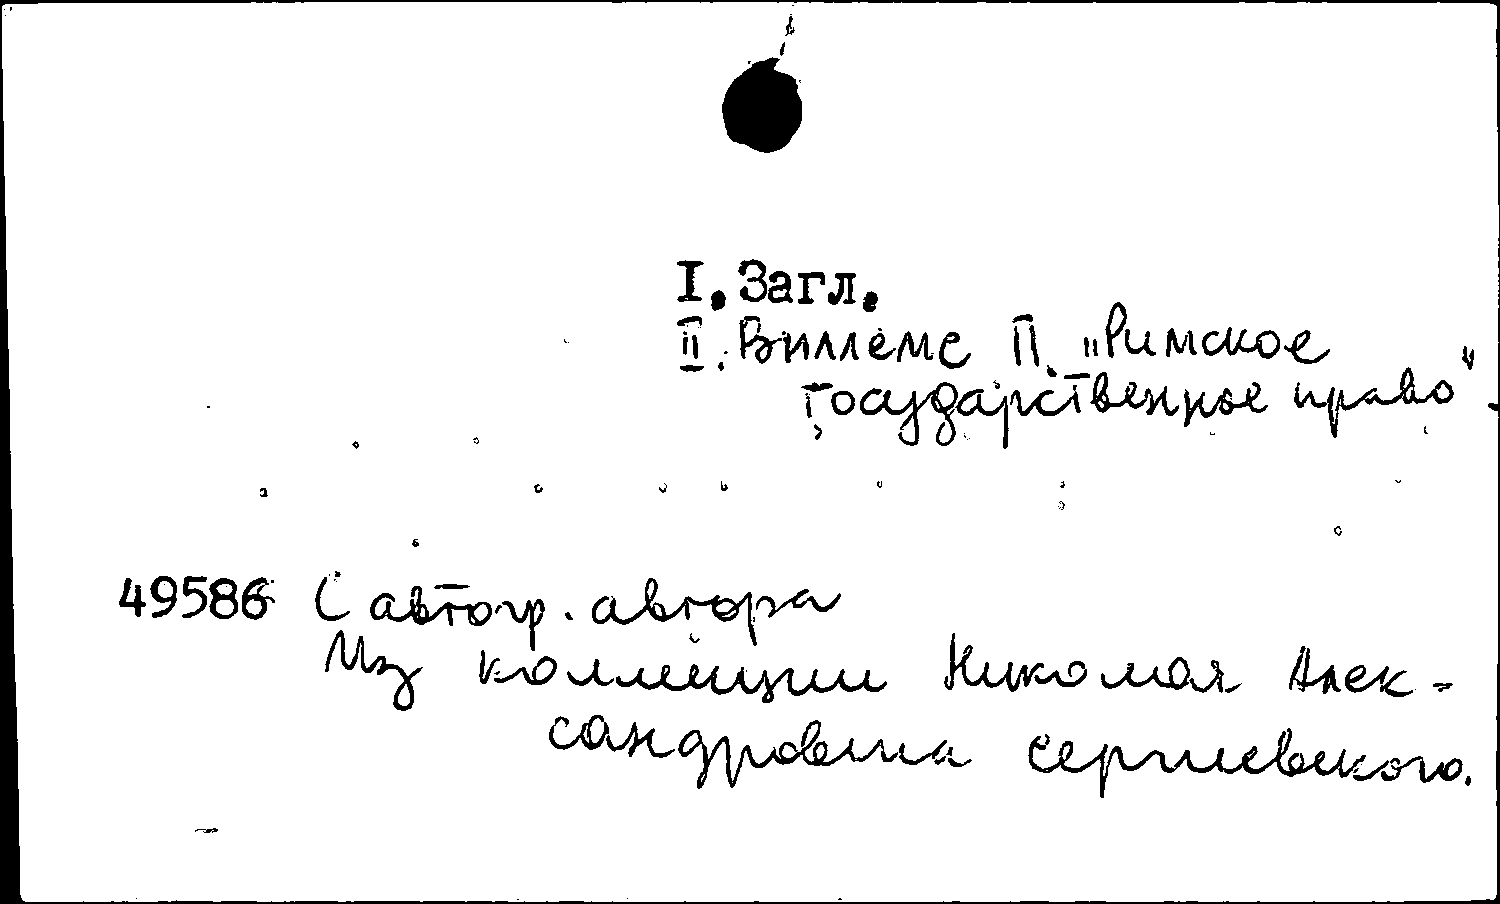 I. Загл.
II. Виллемс П. „Римское
государственное право".
49586 С автогр. автора
Из коллекции Николая Алек-
сандровича Сергиевского.